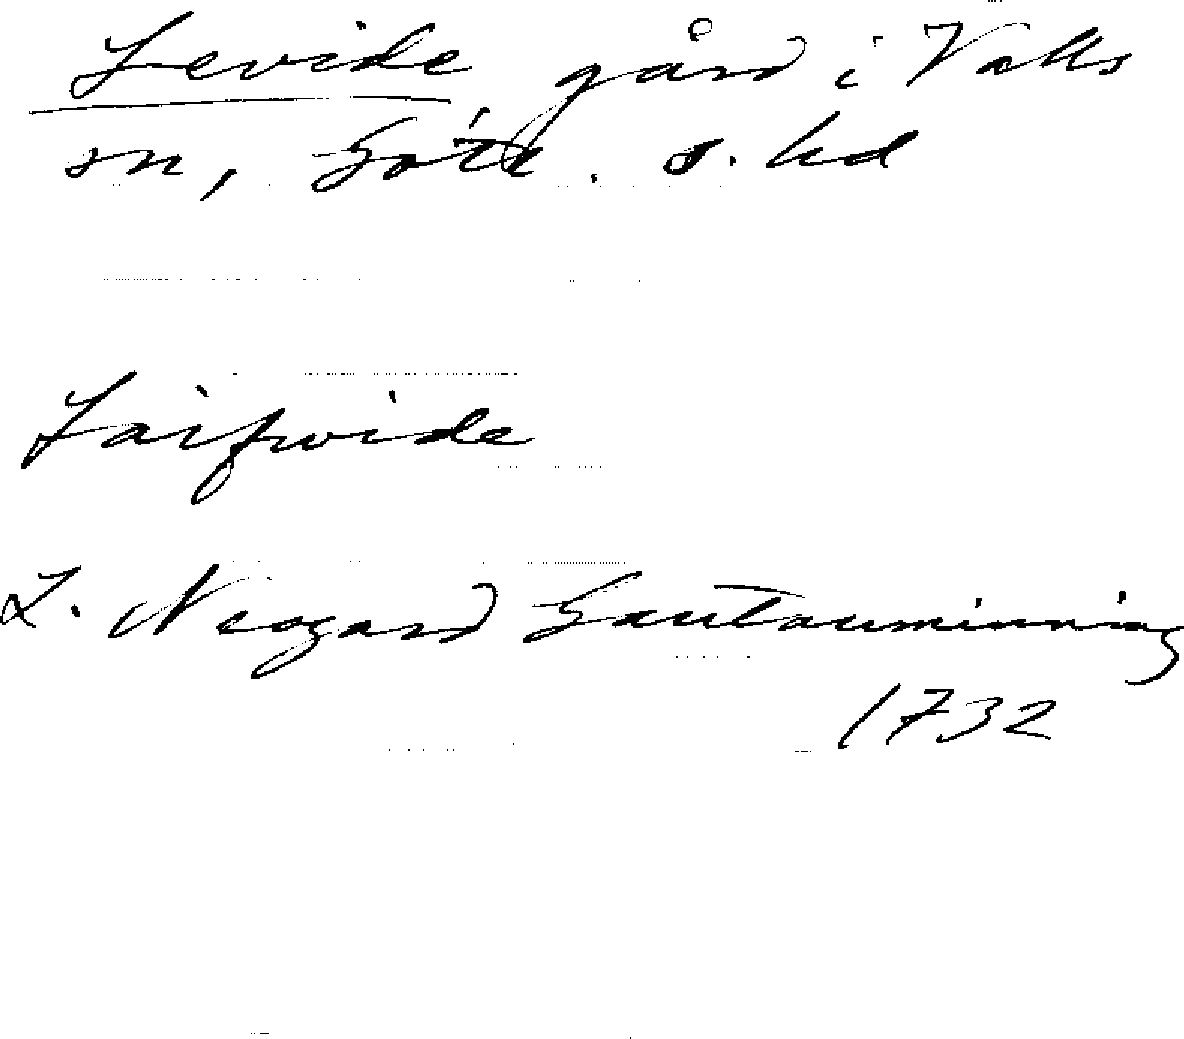 Levide, gård i Valls
sn, Gotl. s. hd
Laifwide
L. Neogard Gautauminning
1732